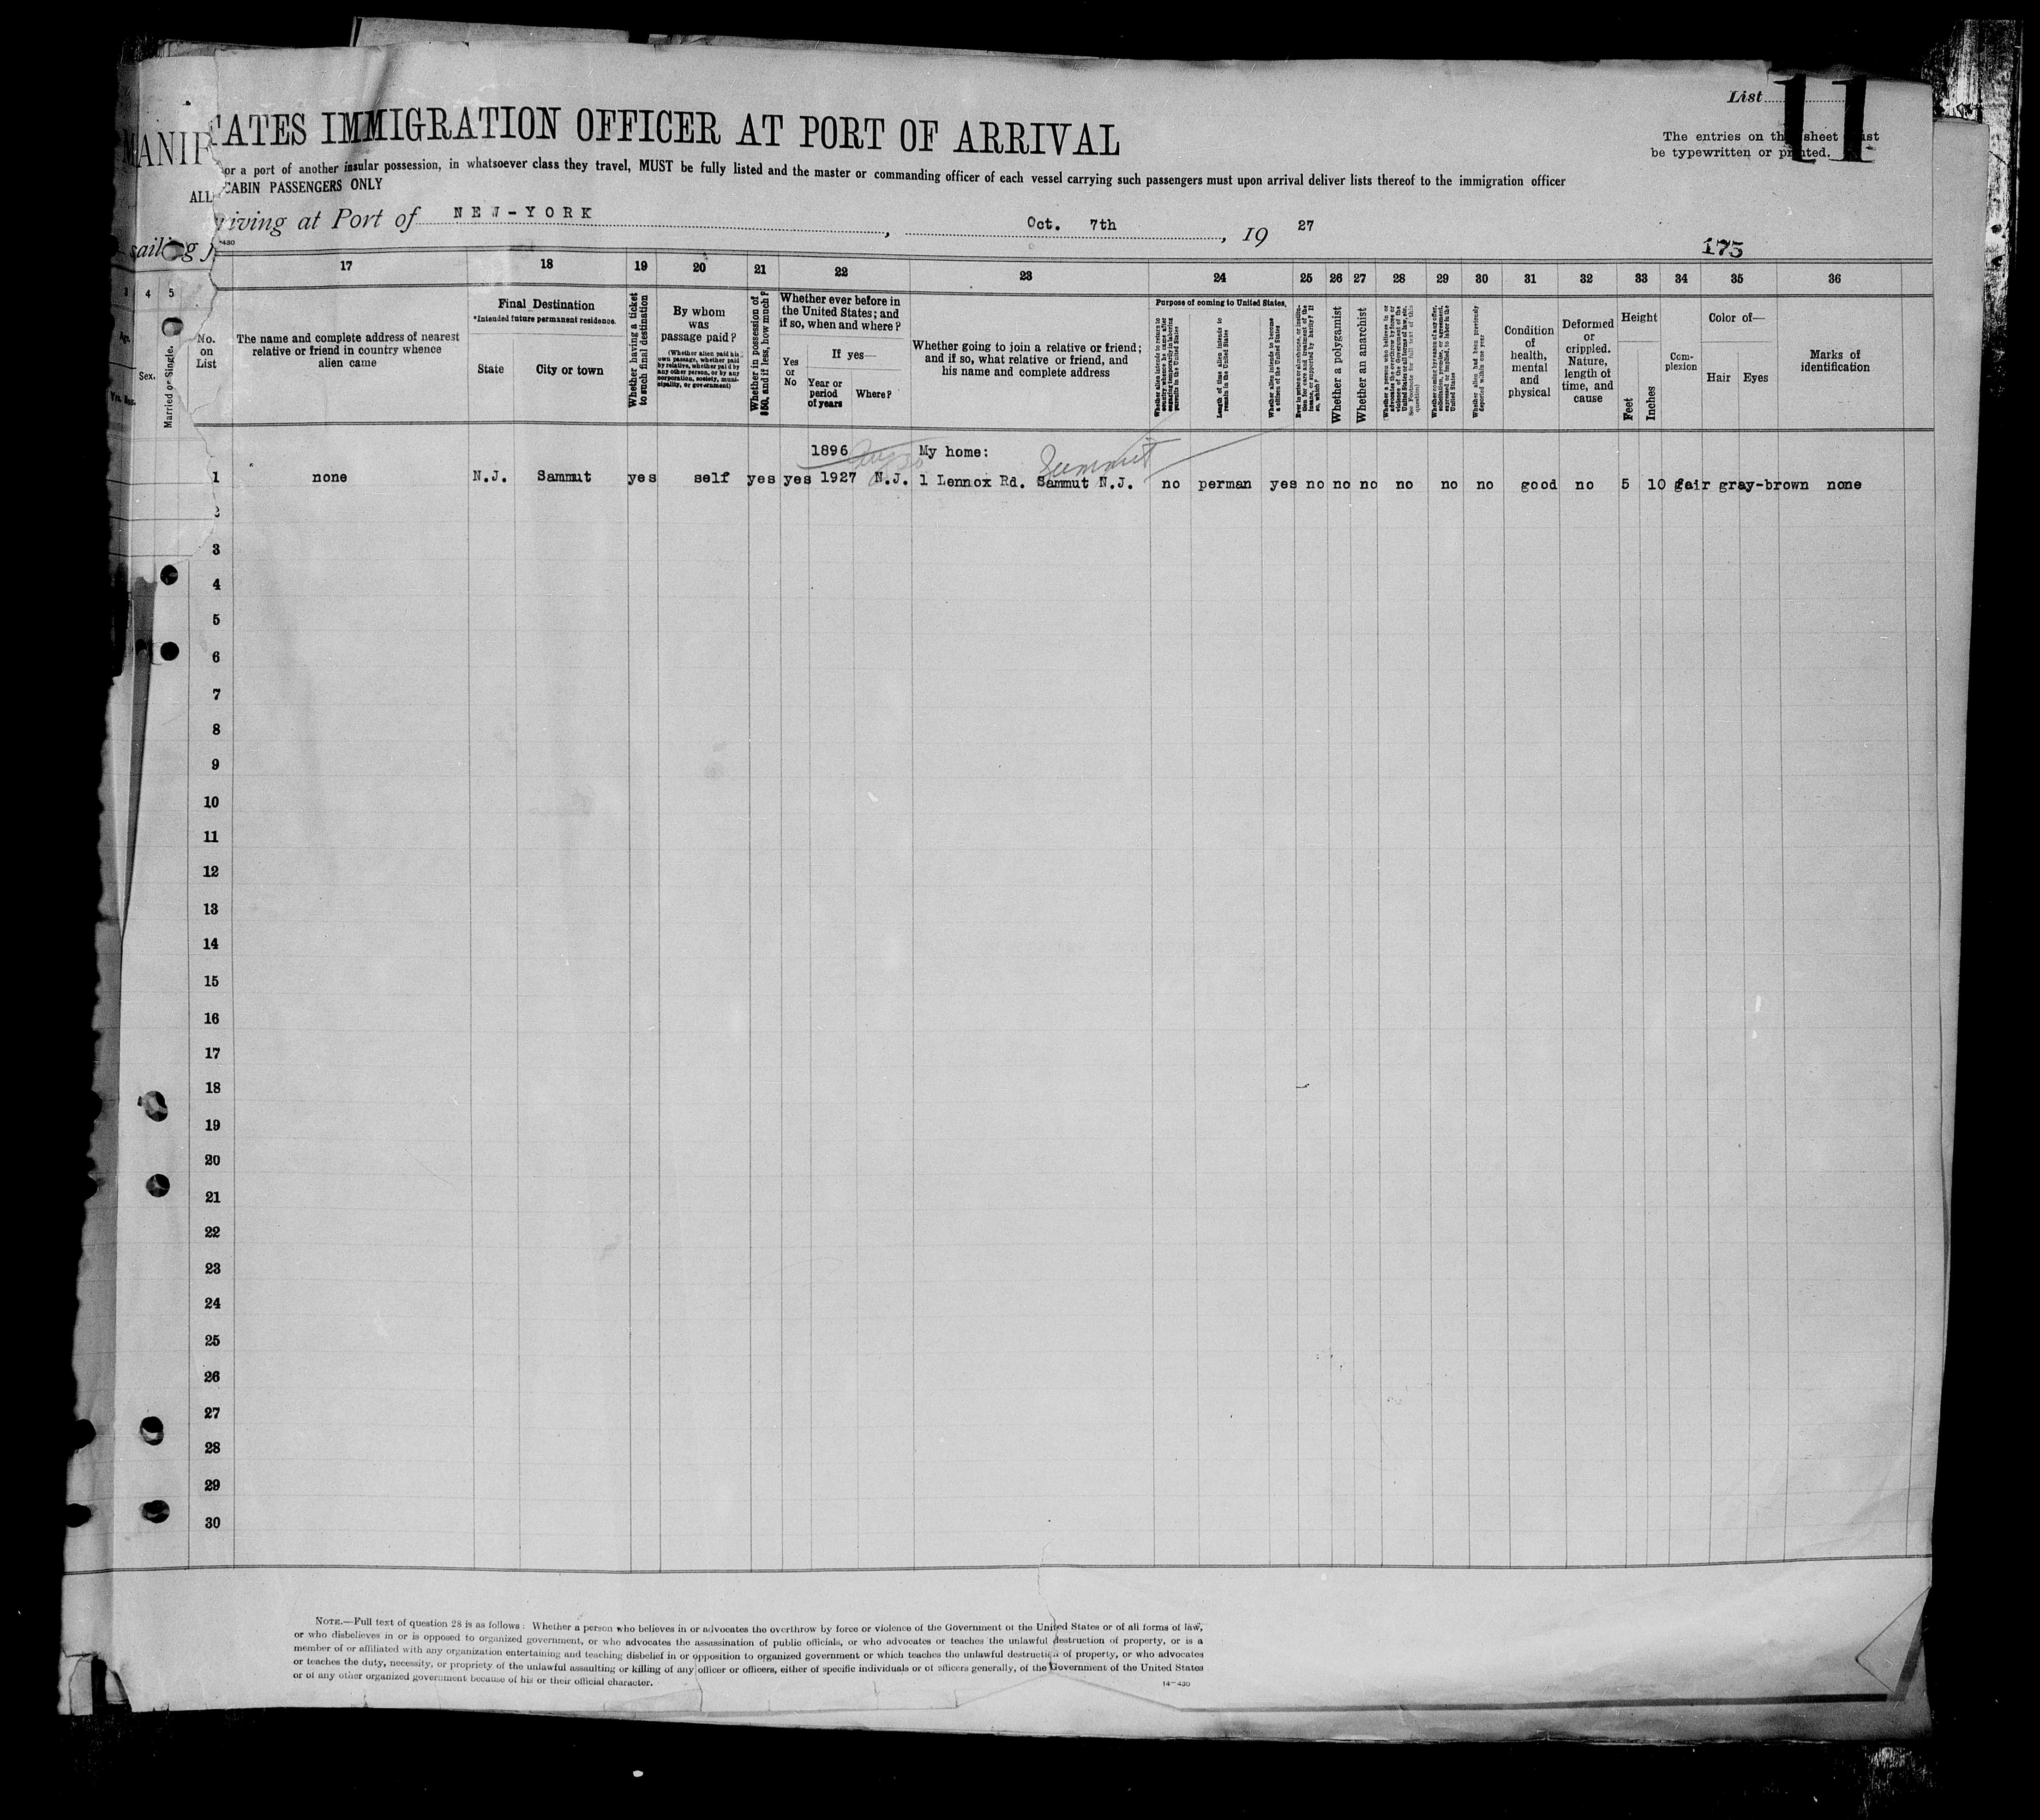 List 11
MANIF
ATES IMMIGRATION OFFICER AT PORT OF ARRIVAL
The entries on this sheet must
be typewritten or printed.
or a port of another insular possession, in whatsoever class they travel, MUST be fully listed and the master or commanding officer of each vessel carrying such passengers must upon arrival deliver lists thereof to the immigration officer
ALL
CABIN PASSENGERS ONLY
riving at Port of NEW-YORK , Oct. 7th , 19 27
sailing
175
17 18 19 20 21 22 23 24 25 26 27 28 29 30 31 32 33 34 35 36
3 4 5
Sex.
Married or Single.
No. on List
The name and complete address of nearest
relative or friend in country whence
alien came
Final Destination
*Intended future permanent residence.
State
City or town
Whether having a ticket
to such final destination
By whom
was
passage paid?
(Whether alien paid his
own passage, whether paid
by relative, whether paid by
any other person, or by any
corporation, society, muni-
cipality, or government)
Whether in possession of
$50, and if less, how much?
Whether ever before in
the United States; and
if so, when and where?
Yes or No
If yes—
Year or
period
of years
Where?
Whether going to join a relative or friend;
and if so, what relative or friend, and
his name and complete address
Purpose of coming to United States.
Length of time alien intends to
remain in the United States
Whether alien intends to become
a citizen of the United States
Whether a polygamist
Whether an anarchist
Whether alien had been previously
deported within one year
Condition
of
health,
mental
and
physical
Deformed
or
crippled.
Nature,
length of
time, and
cause
Height
Feet
Inches
Com-
plexion
Color of—
Hair
Eyes
Marks of
identification
1896 My home: Summit
1 none N.J. Sammut yes self yes yes 1927 N.J. 1 Lennox Rd. Sammut N.J. no perman yes no no no no no no good no 5 10 fair gray-brown none
2
3
4
5
6
7
8
9
10
11
12
13
14
15
16
17
18
19
20
21
22
23
24
25
26
27
28
29
30
NOTE.—Full text of question 28 is as follows: Whether a person who believes in or advocates the overthrow by force or violence of the Government of the United States or of all forms of law,
or who disbelieves in or is opposed to organized government, or who advocates the assassination of public officials, or who advocates or teaches the unlawful destruction of property, or is a
member of or affiliated with any organization entertaining and teaching disbelief in or opposition to organized government or which teaches the unlawful destruction of property, or who advocates
or teaches the duty, necessity, or propriety of the unlawful assaulting or killing of any officer or officers, either of specific individuals or of officers generally, of the Government of the United States
or of any other organized government because of his or their official character.
14—430